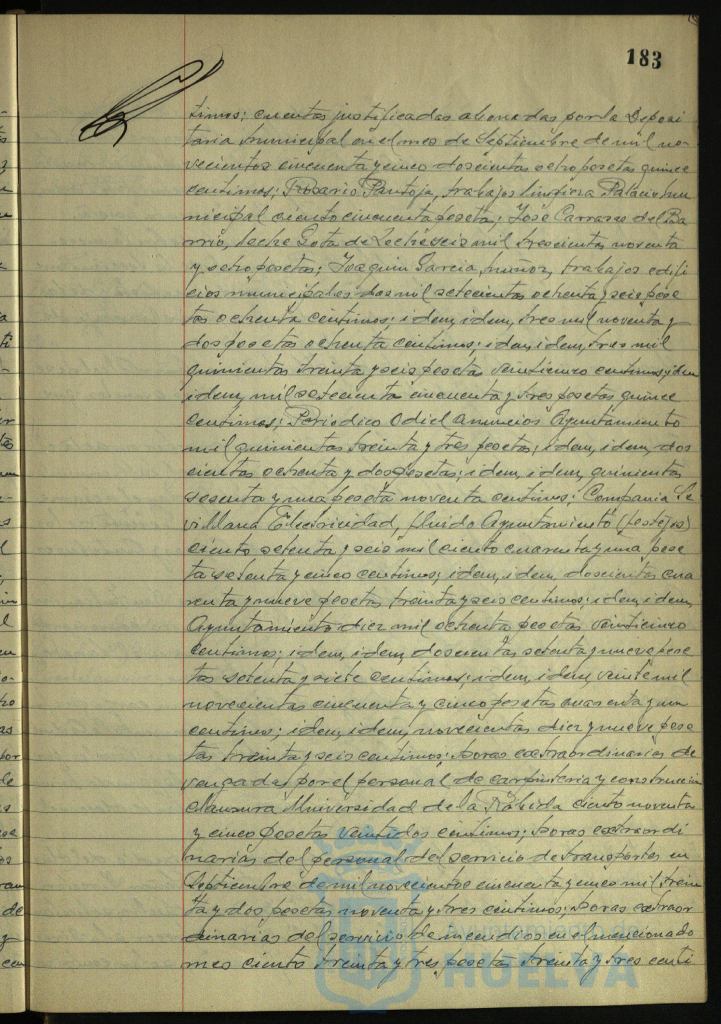 183
timos; cuentas justificadas abonadas por la Deposi
taria Municipal en el mes de Septiembre de mil no-
vecientos cincuenta y cinco doscientas ocho pesetas quince
centimos; Rosario Pantoja, trabajos limpieza Palacio mu
nicipal ciento cincuenta pesetas; José Carrasco del Ba
rrio, leche Gota de Leche seis mil trescientas noventa
y ocho pesetas; Joaquin Garcia Muñoz, trabajos edifi
cios municipales dos mil setecientas ochenta y seis pese
tas ochenta centimos; idem, idem, tres mil noventa y
dos pesetas ochenta centimos; idem, idem, tres mil
quinientas treinta y seis pesetas veinticinco centimos; idem
idem, mil setecienta cincuenta y tres pesetas quince
centimos; Periodico Odiel anuncios Ayuntamiento
mil quinientas treinta y tres pesetas; idem, idem, dos
cientas ochenta y dos pesetas; idem, idem, quinientas
sesenta y una peseta noventa centimos; Compania Se
villana Electricidad, fluido Ayuntamiento (festejos)
ciento setenta y seis mil ciento cuarenta y una pese
ta setenta y cinco centimos; idem, idem, doscientas cua
renta y nueve pesetas treinta y seis centimos; idem, idem,
Ayuntamiento diez mil ochenta pesetas veinticinco
centimos; idem, idem, doscientas setenta y nueve pese
tas setenta y siete centimos; idem, idem, veinte mil
novecientas cincuenta y cinco pesetas cuarenta y un
centimos; idem, idem, novecientas diez y nueve pese
tas treinta y seis centimos; horas extraordinarias de
vengadas por el personal de carpinteria y construccion
clausura Universidad de la Rábida ciento noventa
y cinco pesetas veintidos centimos; horas extraordi
narias del personal del servicio de transportes en
Septiembre de mil novecientos cincuenta y cinco mil trein
ta y dos pesetas noventa y tres centimos; horas extraor
dinarias del servicio de incendios en el mencionado
mes ciento treinta y tres pesetas treinta y tres centi
HUELVA